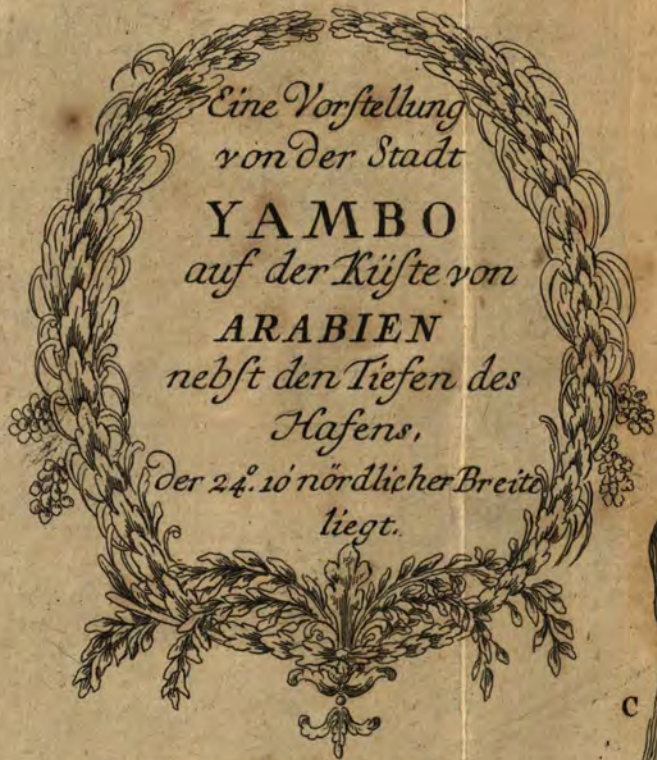 Eine Vorſtellung
von der Stadt
YAMBO
auf der Küſte von
ARABIEN
nebſt den Tiefen des
Hafens,
der 24.° 10' nördlicher Breite
liegt.
C